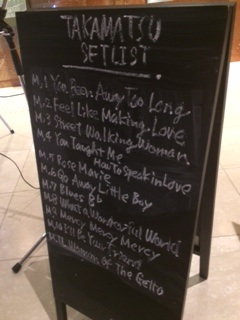 TAKAMATSU
SETLIST
M.1 You Been Away Too Long
M.2 Feel Like Making Love
M.3 Street Walking Woman
M.4 You Taught Me
How To Speak in Love
M.5 Rose Marie
M.6 Go Away Little Boy
M.7 Blues
M.8 What a Wonderful World
M.9 Mercy Mercy Mercy
I'll Be Your Friend
Of The Getto